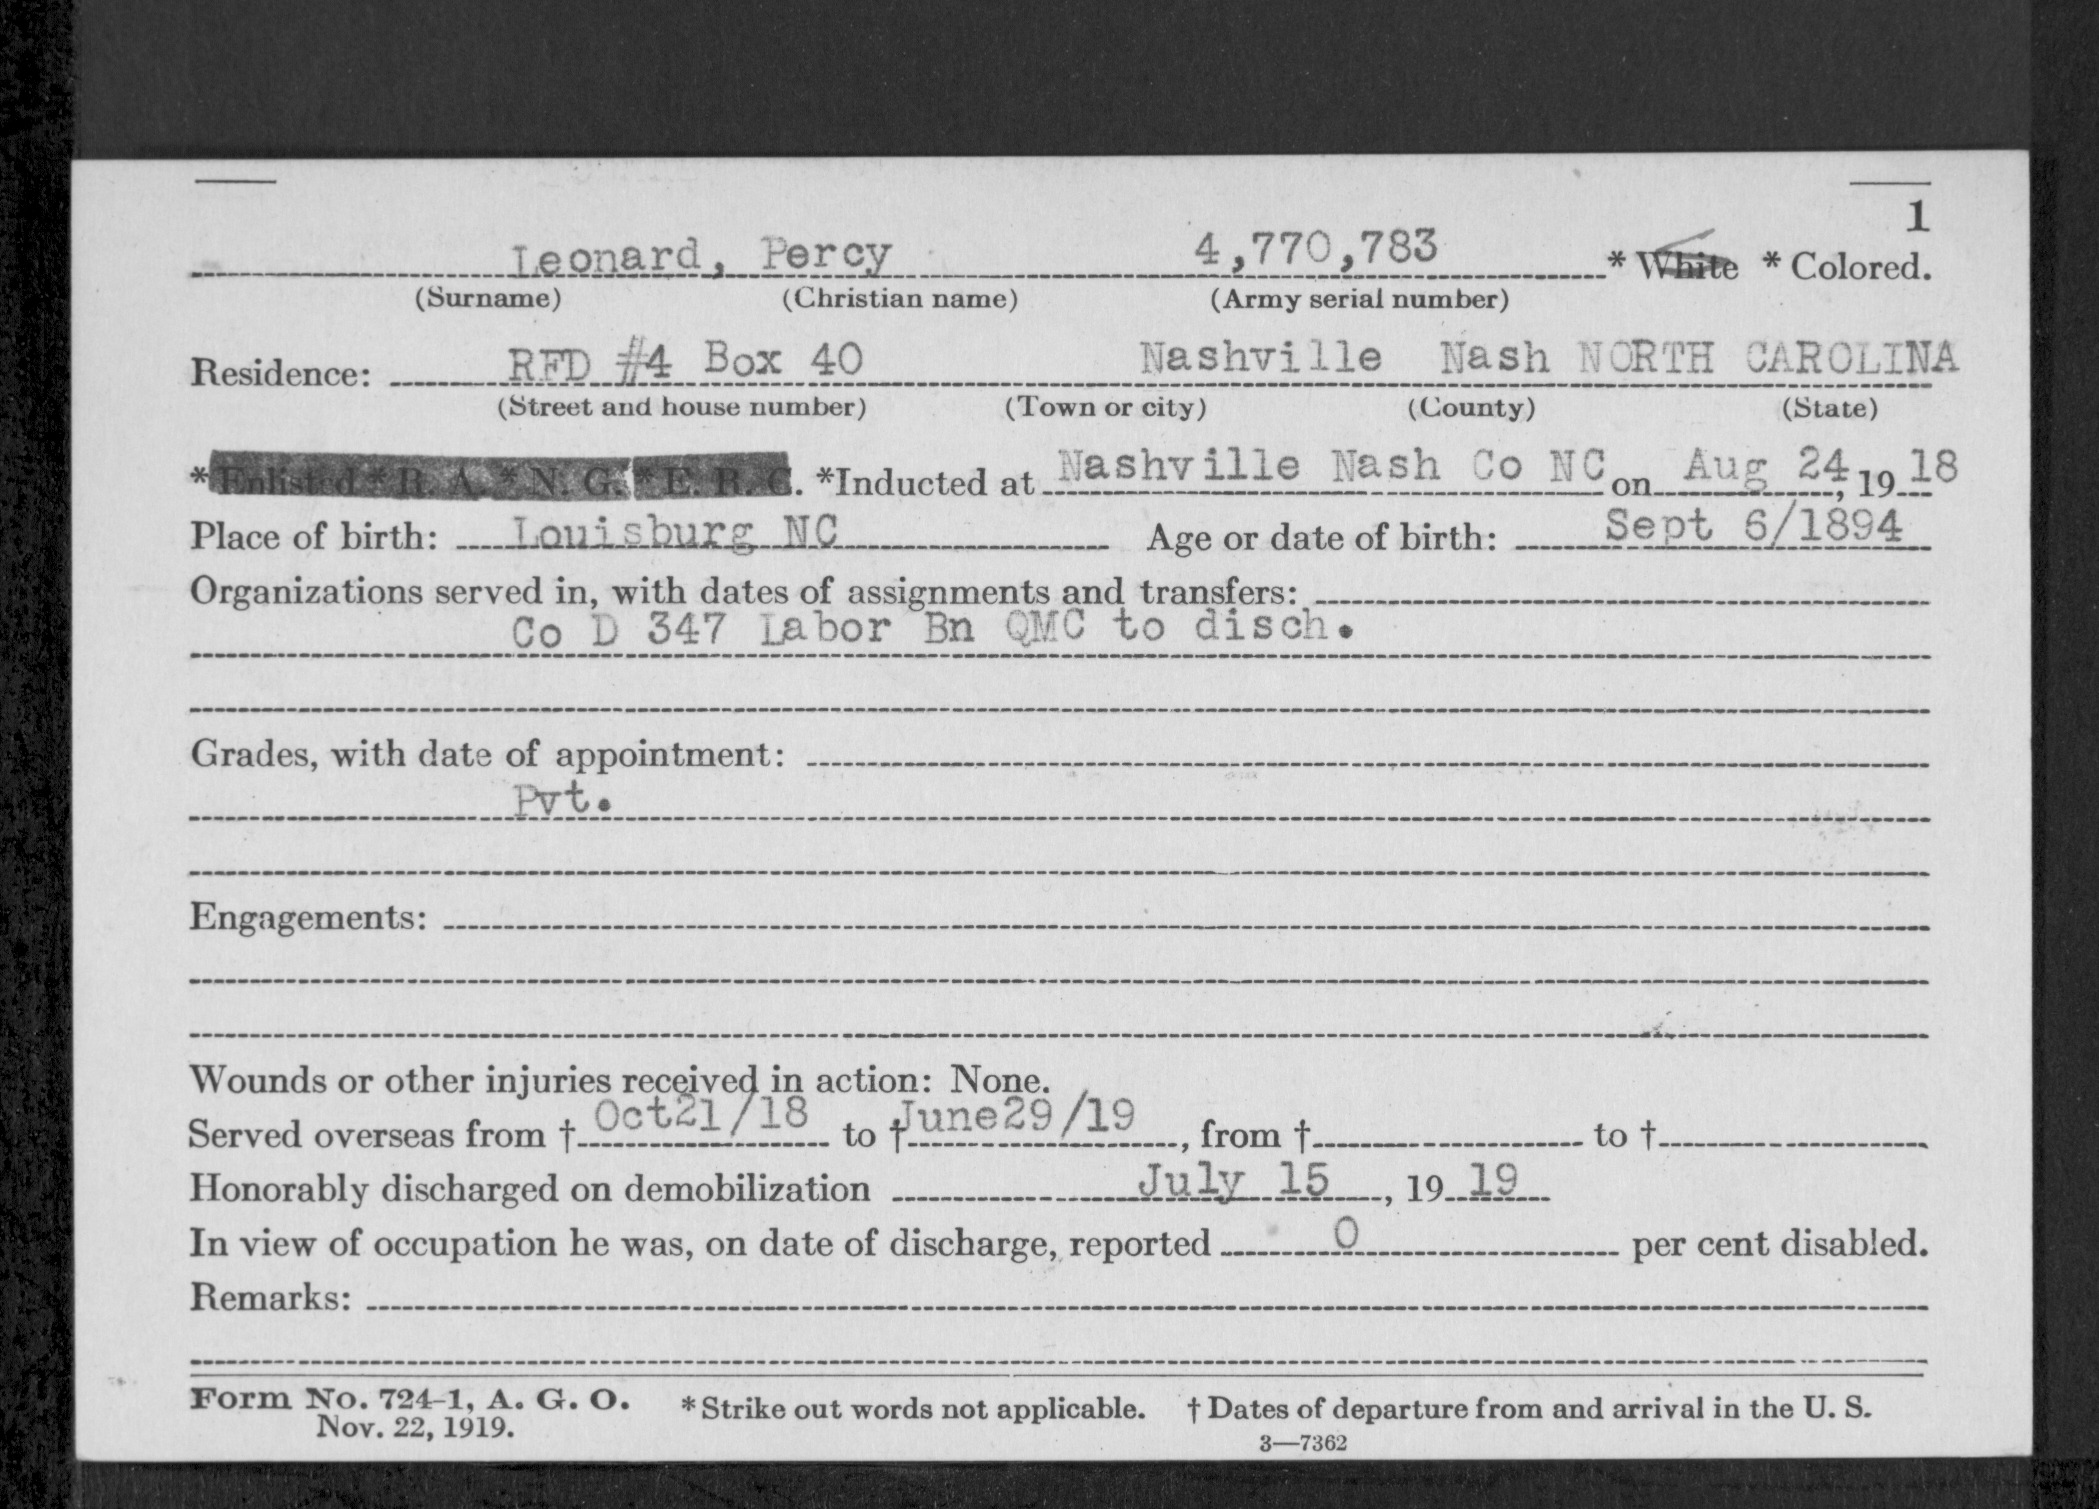 1
Leonard, Percy 4,770,783 * White * Colored.
(Surname) (Christian name) (Army serial number)
Residence: RFD #4 Box 40 Nashville Nash NORTH CAROLINA
(Street and house number) (Town or city) (County) (State)
* Enlisted * R. A. * N. G. * E. R. C. *Inducted at Nashville Nash Co NC on Aug 24, 19 18
Place of birth: Louisburg NC Age or date of birth: Sept 6/1894
Organizations served in, with dates of assignments and transfers:
Co D 347 Labor Bn QMC to disch.
Grades, with date of appointment:
Pvt.
Engagements:
Wounds or other injuries received in action: None.
Served overseas from † Oct21/18 to † June29/19, from † to †
Honorably discharged on demobilization July 15, 19 19
In view of occupation he was, on date of discharge, reported 0 per cent disabled.
Remarks:
Form No. 724-1, A. G. O. * Strike out words not applicable. † Dates of departure from and arrival in the U. S.
Nov. 22, 1919.
3—7362